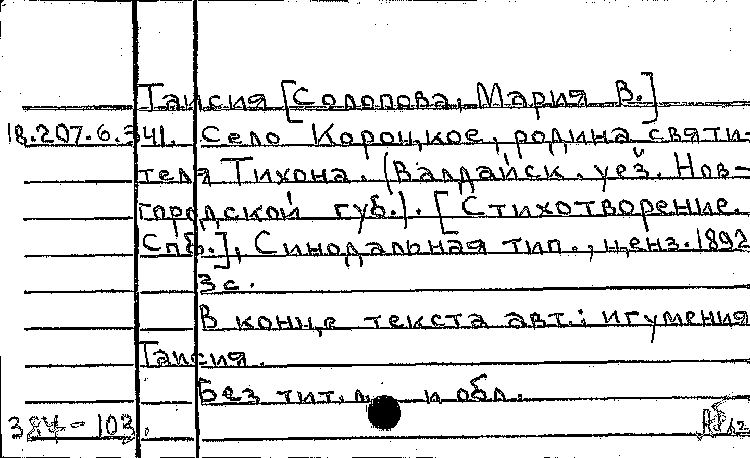 Таисия [Солопова, Мария В.]
18.207.6.341. Село Короцкое, родина святи-
теля Тихона. (Валдайск. уез. Нов-
городской губ.). [Стихотворение.
Спб.], Синодальная тип., ценз. 1892
3 с.
В конце текста авт.: игумения
Таисия.
Без тит. л. и обл.
384-103.